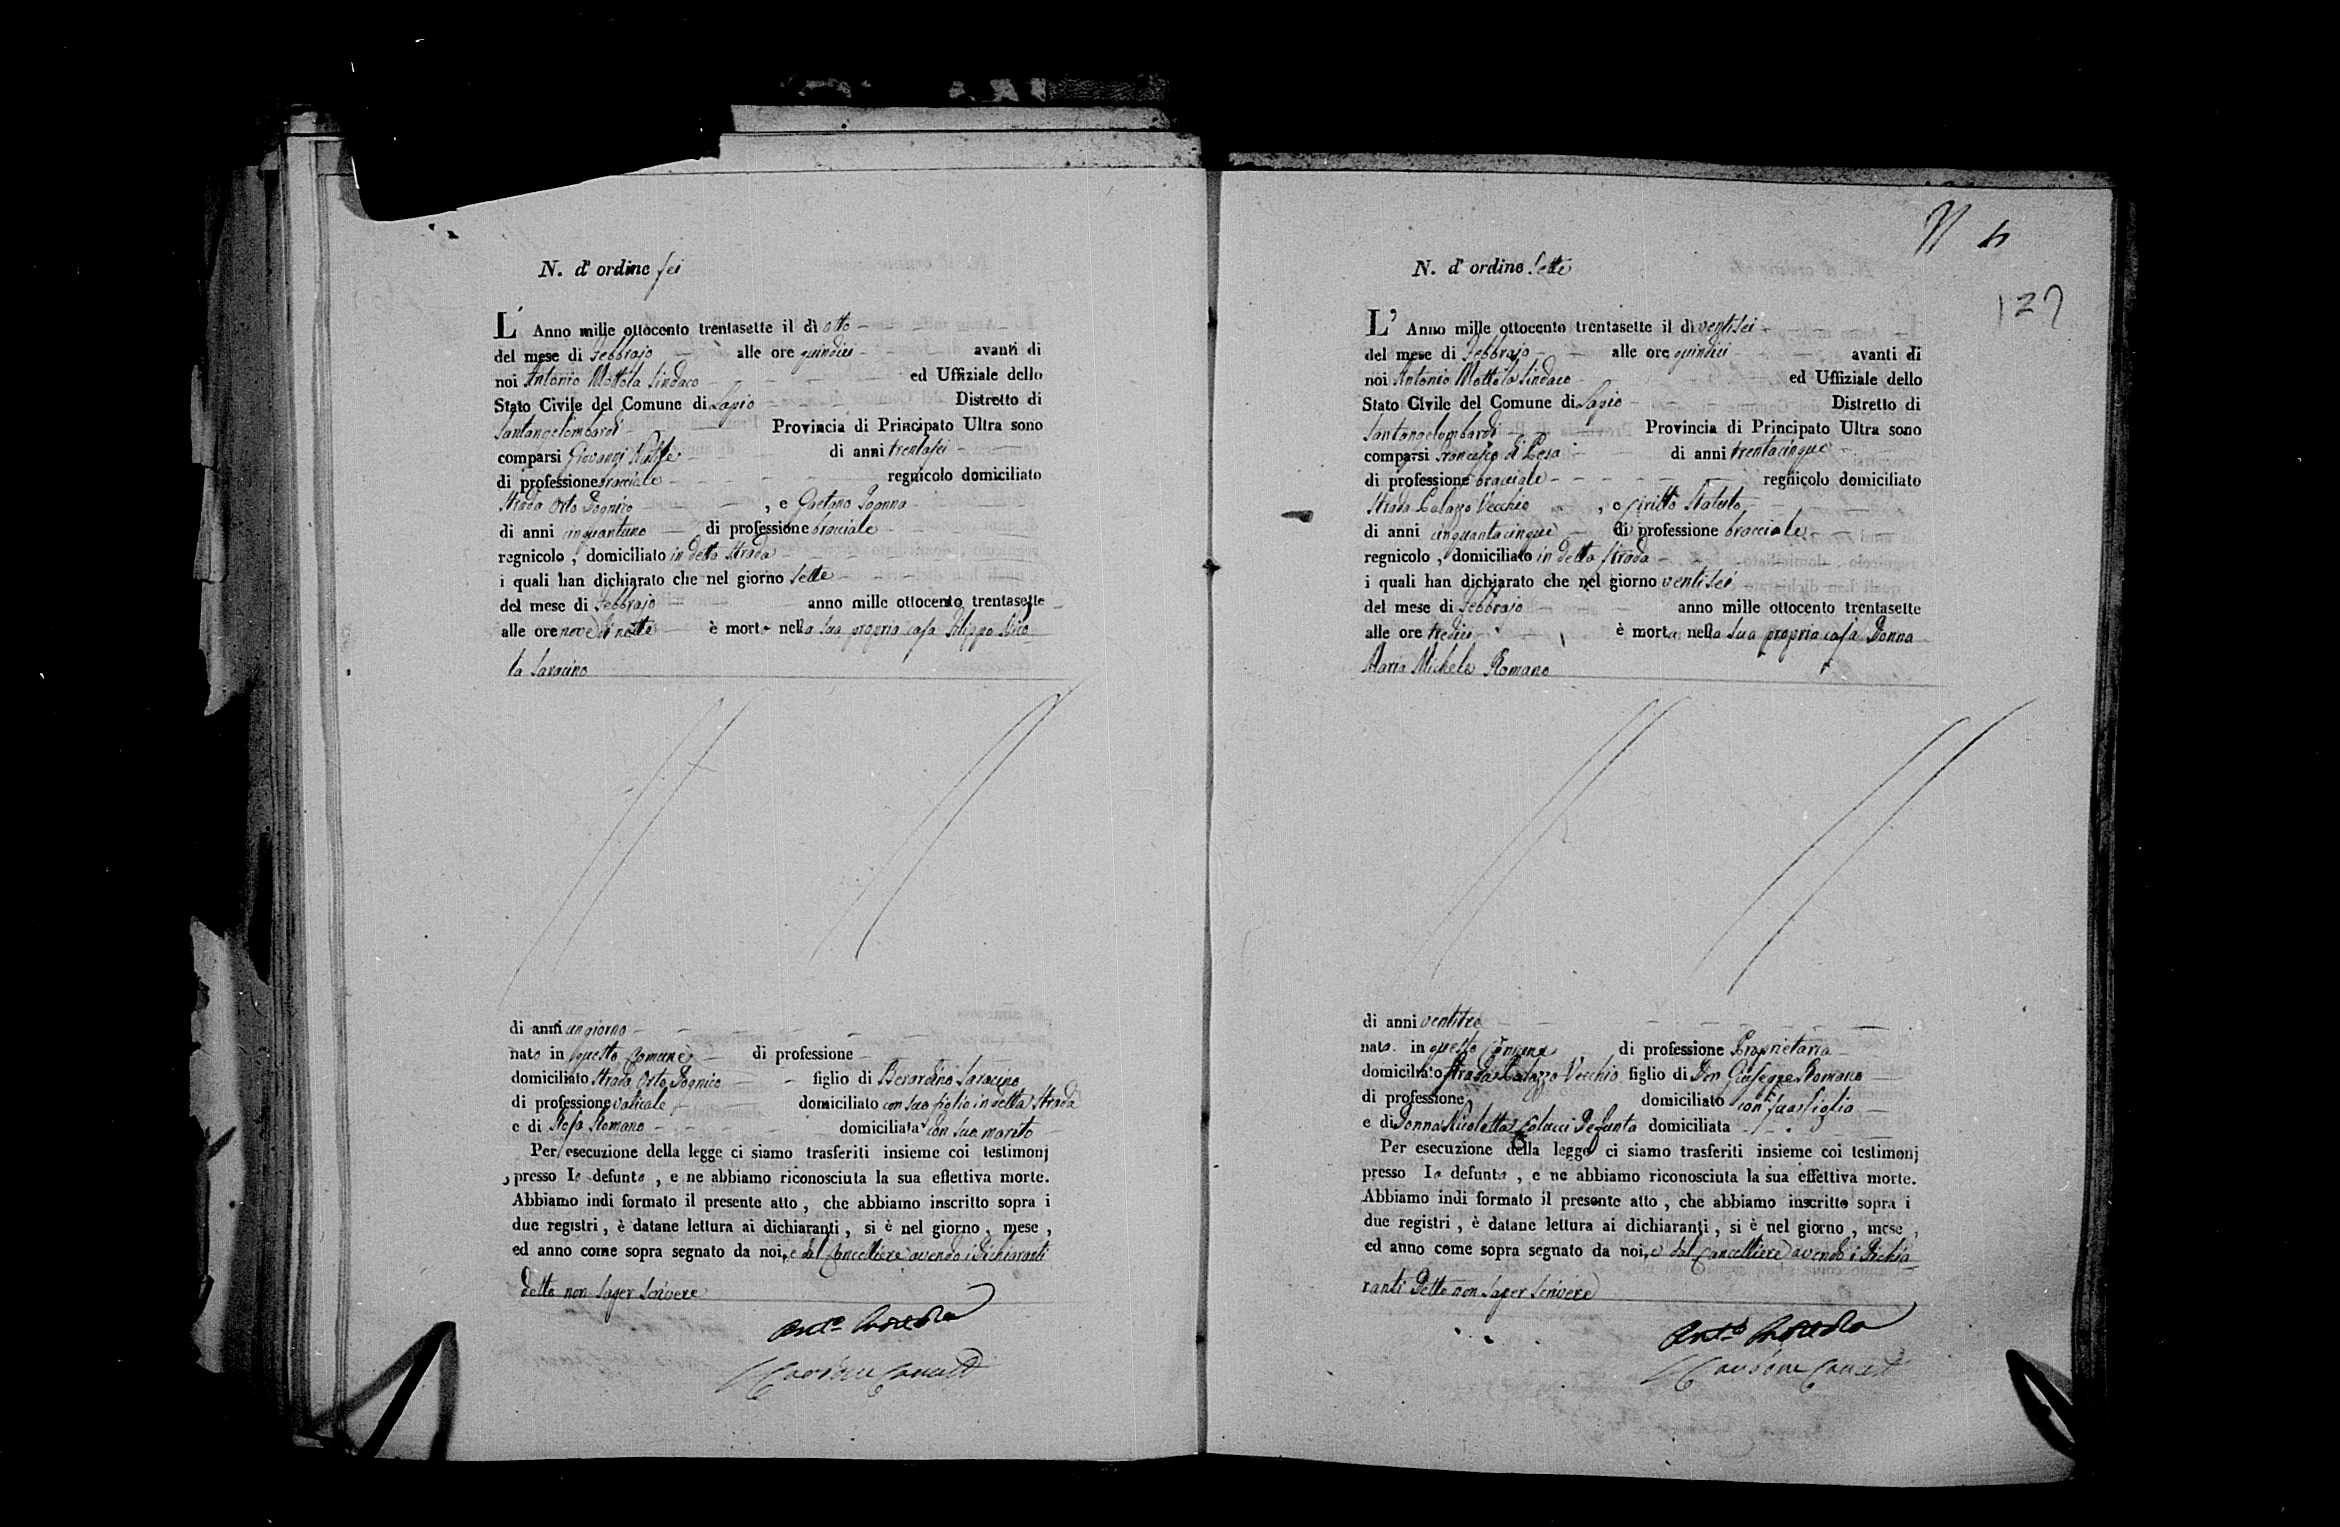 N. d'ordine sei
L' Anno mille ottocento trentasette il dì otto
del mese di Febbrajo alle ore quindici avanti di
noi Antonio Mottola Sindaco ed Uffiziale dello
Stato Civile del Comune di Lapio Distretto di
Santangelombardi Provincia di Principato Ultra sono
comparsi Giovanni di anni trentasei
di professione bracciale regnicolo domiciliato
Strada Orto , e Gaetano
di anni cinquantuno di professione bracciale
regnicolo , domiciliato in detta Strada
i quali han dichiarato che nel giorno sette
del mese di Febbrajo anno mille ottocento trentasette
alle ore nove di notte è mort nella sua propria casa Filippo Nico
la Saracino
di anni un giorno
nato in questo Comune di professione
domiciliato Strada Orto figlio di Berardino Saracino
di professione vaticale domiciliato con suo figlio in detta Strada
e di Rosa Romano domiciliata con suo marito
Per esecuzione della legge ci siamo trasferiti insieme coi testimonj
presso lo defunto , e ne abbiamo riconosciuta la sua effettiva morte.
Abbiamo indi formato il presente atto , che abbiamo inscritto sopra i
due registri , è datane lettura ai dichiaranti , si è nel giorno , mese ,
ed anno come sopra segnato da noi, e dal Cancelliere avendo i Dichiaranti
detto non saper scrivere
Ant.o Mottola
N 4
127
N. d'ordine Sette
L' Anno mille ottocento trentasette il dì ventisei
del mese di Febbrajo alle ore quindici avanti di
noi Antonio Mottola Sindaco ed Uffiziale dello
Stato Civile del Comune di Lapio Distretto di
Santangelombardi Provincia di Principato Ultra sono
comparsi Francesco di anni trentacinque
di professione bracciale regnicolo domiciliato
Strada Palazzo Vecchio , e
di anni cinquantacinque di professione bracciale
regnicolo , domiciliato in detta Strada
i quali han dichiarato che nel giorno ventisei
del mese di Febbrajo anno mille ottocento trentasette
alle ore tredici è morta nella sua propria casa Donna
Maria Michele Romano
di anni ventitre
nata in questo Comune di professione Proprietaria
domiciliato Strada Palazzo Vecchio figlio di Don Giuseppe Romano
di professione domiciliato con sua figlia
e di Donna Nicoletta Colucci Defunta domiciliata
Per esecuzione della legge ci siamo trasferiti insieme coi testimonj
presso la defunta , e ne abbiamo riconosciuta la sua effettiva morte.
Abbiamo indi formato il presente atto , che abbiamo inscritto sopra i
due registri , è datane lettura ai dichiaranti , si è nel giorno , mese ,
ed anno come sopra segnato da noi, e dal Cancelliere avendo i Dichia
ranti Detto non saper scrivere
Ant.o Mottola